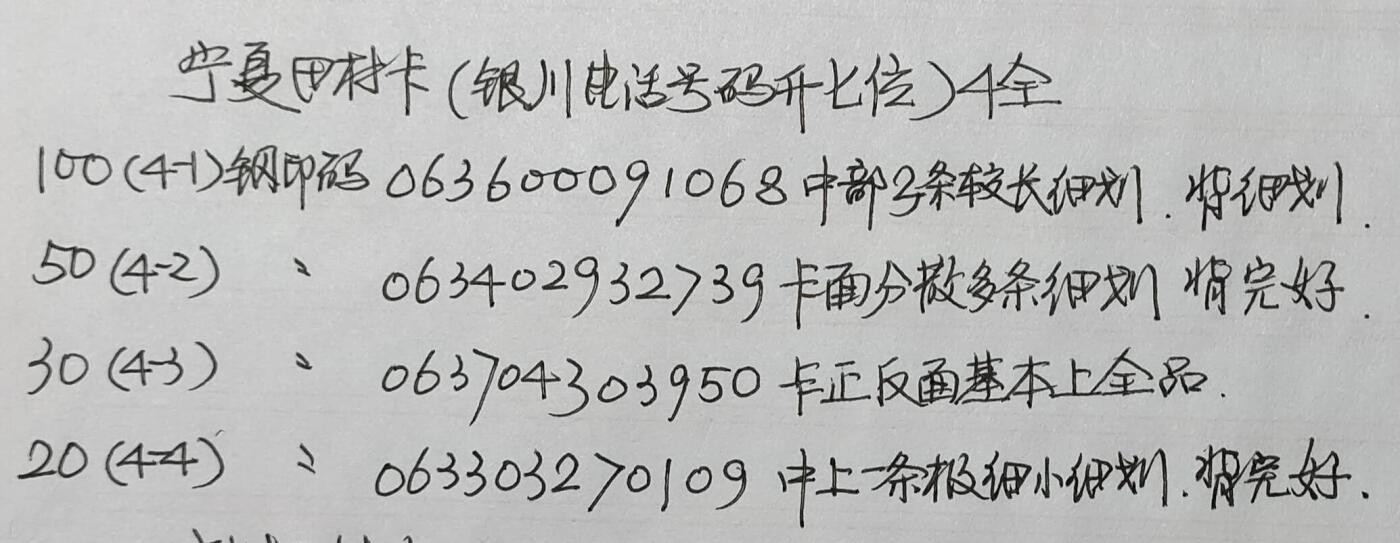 宁夏田村卡(银川电话号码升七位)4全
100(4-1)钢印码 063600091068 中部3条较长细划.背细划.
50(4-2) 〃 063402932739 卡面分散多条细划 背完好.
30(4-3) 〃 063704303950 卡正反面基本上全品.
20(4-4) 〃 063303270109 中上一条极细小细划.背完好.